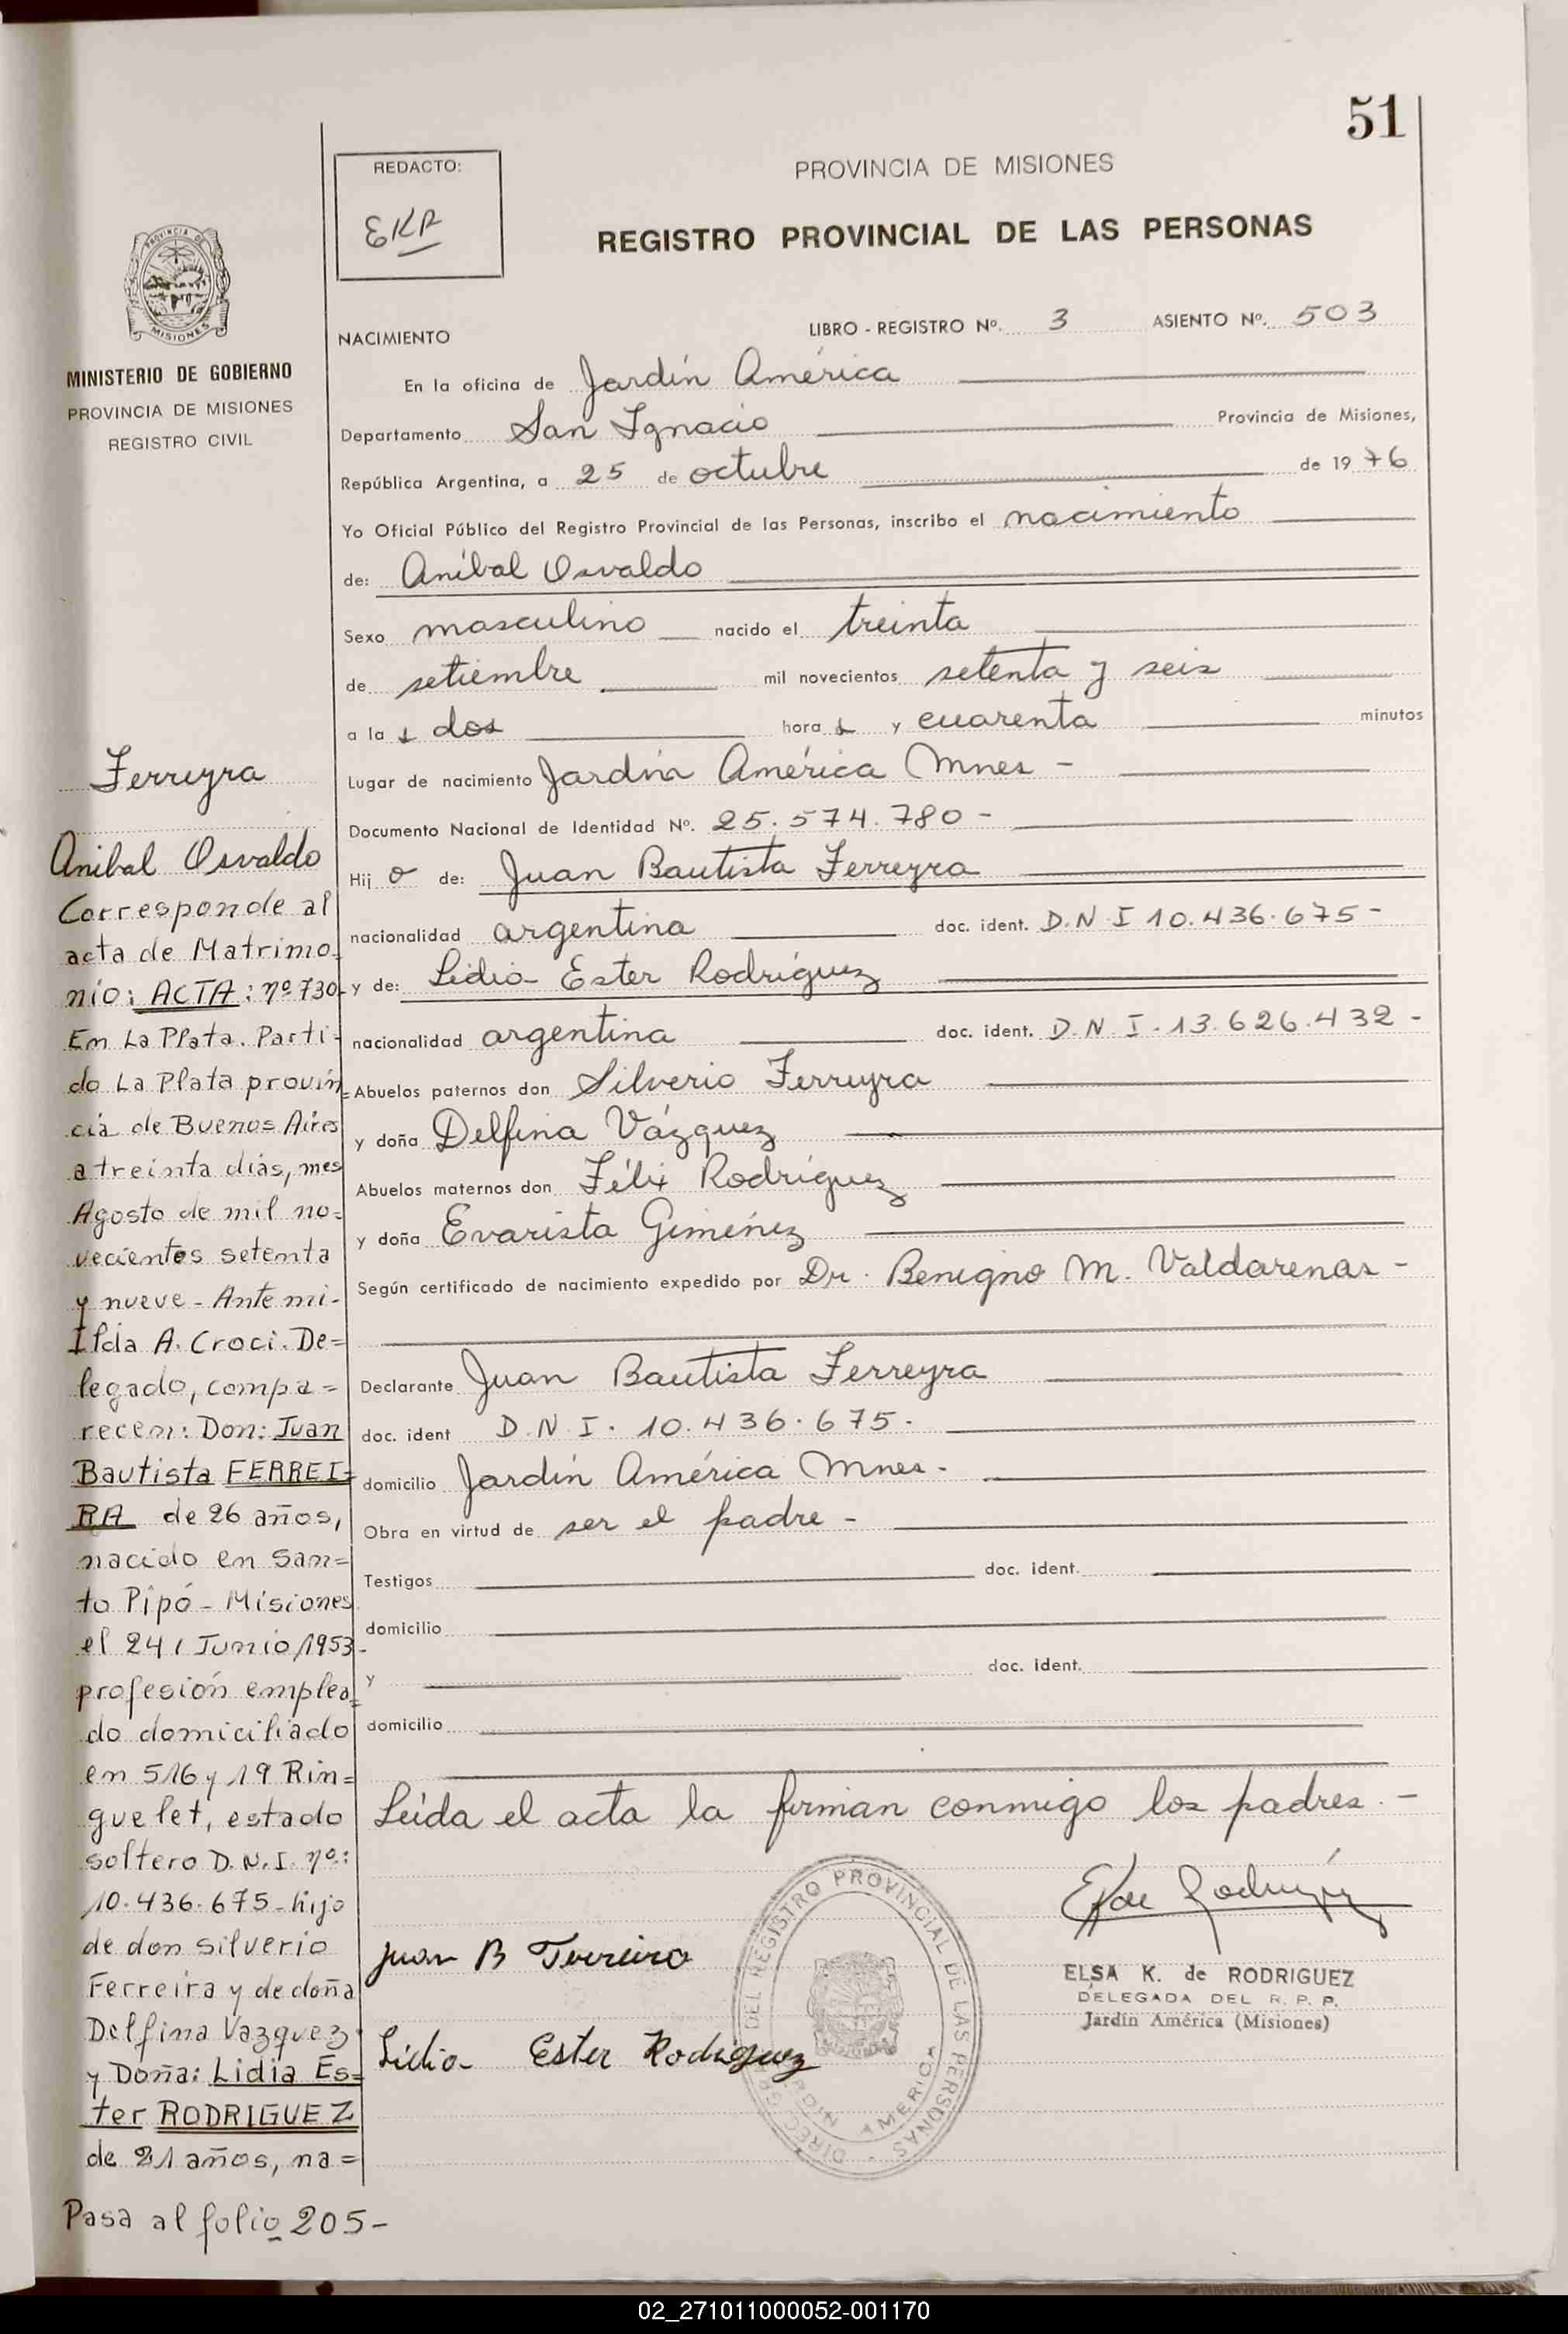 51
REDACTO:
EKR
PROVINCIA DE MISIONES
REGISTRO PROVINCIAL DE LAS PERSONAS
NACIMIENTO
LIBRO - REGISTRO Nº. 3 ASIENTO Nº. 503
En la oficina de Jardín América
Departamento San Ignacio Provincia de Misiones,
República Argentina, a 25 de octubre de 1976
Yo Oficial Público del Registro Provincial de las Personas, inscribo el nacimiento
de: Aníbal Osvaldo
Sexo masculino nacido el treinta
de setiembre mil novecientos setenta y seis
a las dos horas y cuarenta minutos
Lugar de nacimiento Jardín América Mnes -
Documento Nacional de Identidad Nº. 25.574.780 -
Hijo de: Juan Bautista Ferreyra
nacionalidad argentina doc. ident. D.N.I 10.436.675 -
y de: Lidia Ester Rodríguez
nacionalidad argentina doc. ident. D.N.I. 13.626.432 -
Abuelos paternos don Silverio Ferreyra
y doña Delfina Vázquez
Abuelos maternos don Félix Rodríguez
y doña Evarista Giménez
Según certificado de nacimiento expedido por Dr. Benigno M. Valdarenas -
Declarante Juan Bautista Ferreyra
doc. ident D.N.I. 10.436.675.
domicilio Jardín América Mnes -
Obra en virtud de ser el padre -
Testigos doc. ident.
domicilio
y doc. ident.
domicilio
Leída el acta la firman conmigo los padres. -
Juan B Ferreira
Lidia Ester Rodriguez
DIREC. GRAL. DEL REGISTRO PROVINCIAL DE LAS PERSONAS
JARDIN AMERICA
ELSA K. de RODRIGUEZ
DELEGADA DEL R. P. P.
Jardín América (Misiones)
PROVINCIA DE
MISIONES
MINISTERIO DE GOBIERNO
PROVINCIA DE MISIONES
REGISTRO CIVIL
Ferreyra
Anibal Osvaldo
Corresponde al
acta de Matrimo-
nio: ACTA: nº 730-
En La Plata. Parti-
do La Plata provin=
cia de Buenos Aires
a treinta días, mes
Agosto de mil no=
vecientos setenta
y nueve - Ante mi-
Ilda A. Croci. De=
legado, compa=
recen: Don: Juan
Bautista FERREI=
RA de 26 años,
nacido en San=
to Pipó - Misiones
el 24 / Junio /1953-
profesión emplea=
do domiciliado
en 516 y 19 Rin=
guelet, estado
soltero D.N.I. nº:
10.436.675 - hijo
de don Silverio
Ferreira y de doña
Delfina Vazquez
y Doña: Lidia Es=
ter RODRIGUEZ
de 21 años, na=
Pasa al folio 205-
02_271011000052-001170